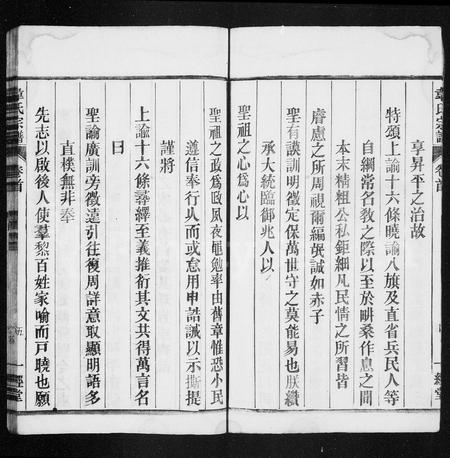 章氏宗譜
卷首
一經堂
享昇平之治故
特頒上諭十六條曉諭八旗及直省兵民人等
自綱常名教之際以至於耕桑作息之間
本末精粗公私鉅細凡民情之所習皆
睿慮之所周視爾編氓誠如赤子
聖有謨訓明徵定保萬世守之莫能易也朕纘
承大統臨御兆人以
聖祖之心爲心以
聖祖之政爲政夙夜黽勉率由舊章惟恐小民
遵信奉行久而或怠用申誥誡以示撕提
謹將
上諭十六條尋繹至義推衍其文共得萬言名
曰
聖諭廣訓旁徵遠引往復周詳意取顯明語多
直樸無非奉
先志以啟後人使羣黎百姓家喻而戸曉也願
章氏宗譜
卷首
五
一經堂